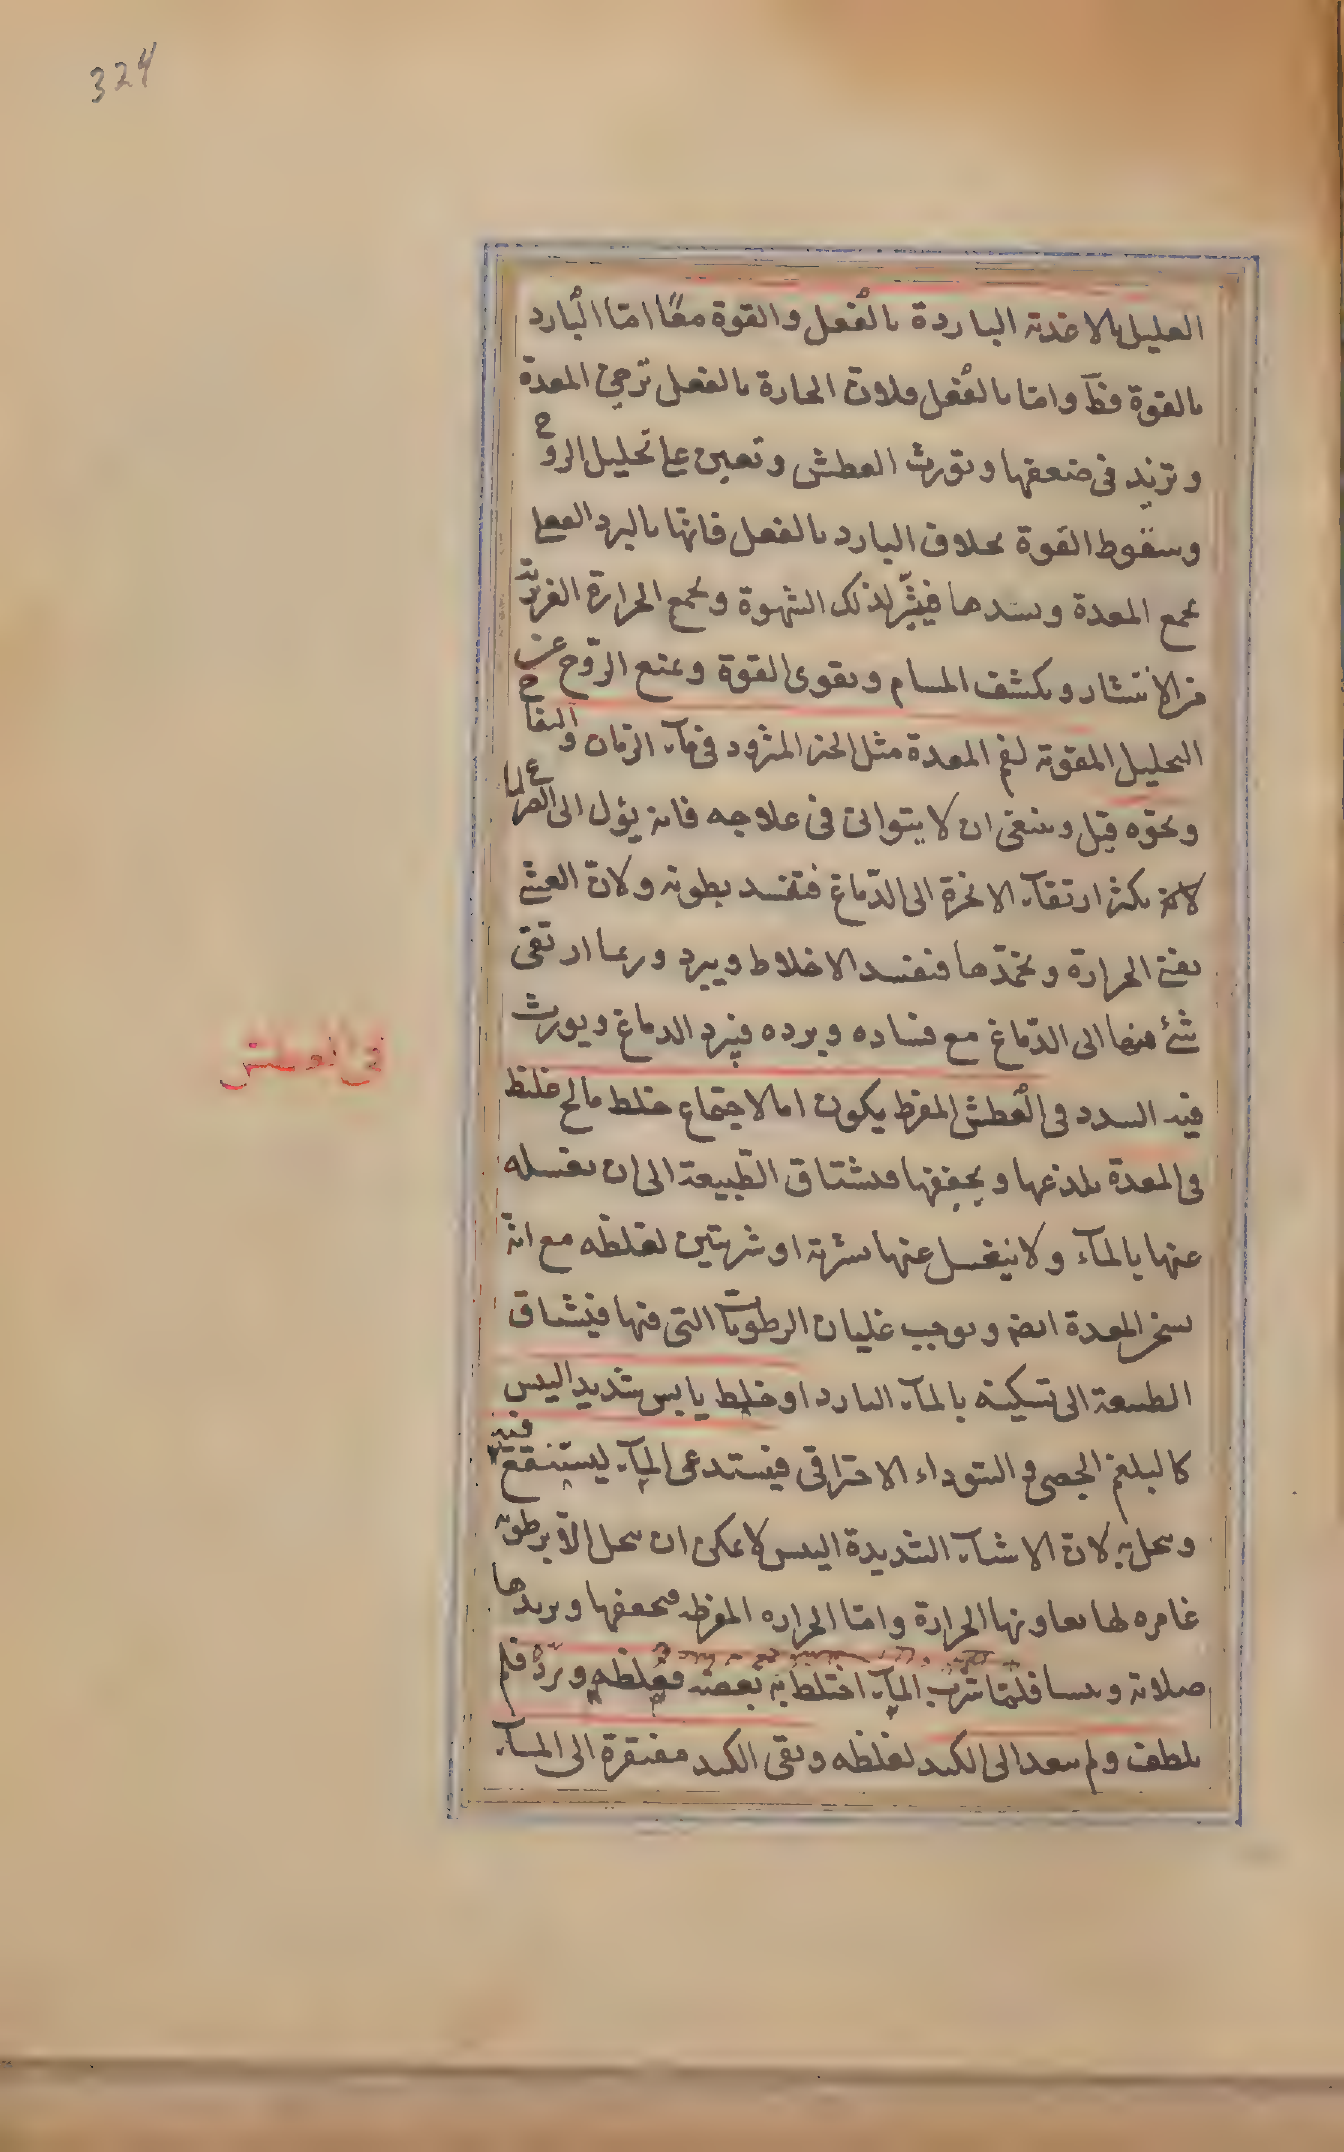 324
العليل بالاغذية الباردة بالفعل والقوة معًا امّا البارد
بالقوة فظَ وامّا بالفعل فلانّ الحارة بالفعل ترخى المعدة
وتزيد فى ضعفها وتورث العطش وتعين على تحليل الروح
وسقوط القوة بخلاف البارد بالفعل فانّها بالبرد الفعلى
يجمع المعدة ويسدها فيثير لذلك الشهوة ويجمع الحرارة الغريزية
من الانتشار ويكشف المسام ويقوى القوة ويمنع الروح عن
التحليل المقوّية لفم المعدة مثل الخبز المثرود فى مآء الرمان والتفاح
ونحوه قيل وينبغى ان لا يتوانى فى علاجه فانه يؤل الى الصرع لما
لانه يكثر ارتقآء الابخرة الى الدّماغ فتفسد بطونه ولانّ العشى
يفنى الحرارة ويخمدها فتفسد الاخلاط ويبرد وربما ارتقى
شئ منها الى الدّماغ مع فساده وبرده فيبرد الدماغ ويورث
فيه السدد فى العطش المفرط يكون اما لاجتماع خلط مالح غليظ
فى المعدة يلذعها ويجففها فيشتاق الطّبيعة الى ان يغسله
عنها بالمآء ولا ينغسل عنها بشربة او شربتين لغلظه مع انّه
يسخن المعدة ايضا ويوجب غليان الرطوبات التى فيها فيشتاق
الطبيعة الى تسكينه بالمآء البارد او خلط يابس شديد اليبس
كالبلغم الجصى والسّوداء الاحتراقى فيستدعى المآء ليستنقع فيه
وينحل به لانّ الاشيآء الشديدة اليبس لا يمكن ان ينحل الّا برطوبة
غامره لها يعاونها الحرارة وامّا الحراره المفرطه فيجففها ويزيدها
صلابة ويبسا فلمّا شرب المآء اختلط به بعضه فغلظه وبرّده فلم
يلطف ولم ينفد الى الكبد لغلظه وبقى الكبد مفتقرة الى المآء
فى العطش